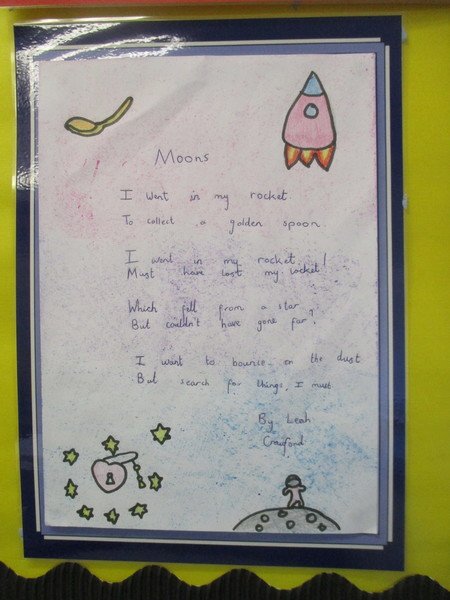 Moons
I went in my rocket.
To collect a golden spoon
I went in my rocket!
Must have lost my locket
Which fell from a star,
But couldn't have gone far.
I want to bounce on the dust
But search for things, I must.
By Leah
Crawford